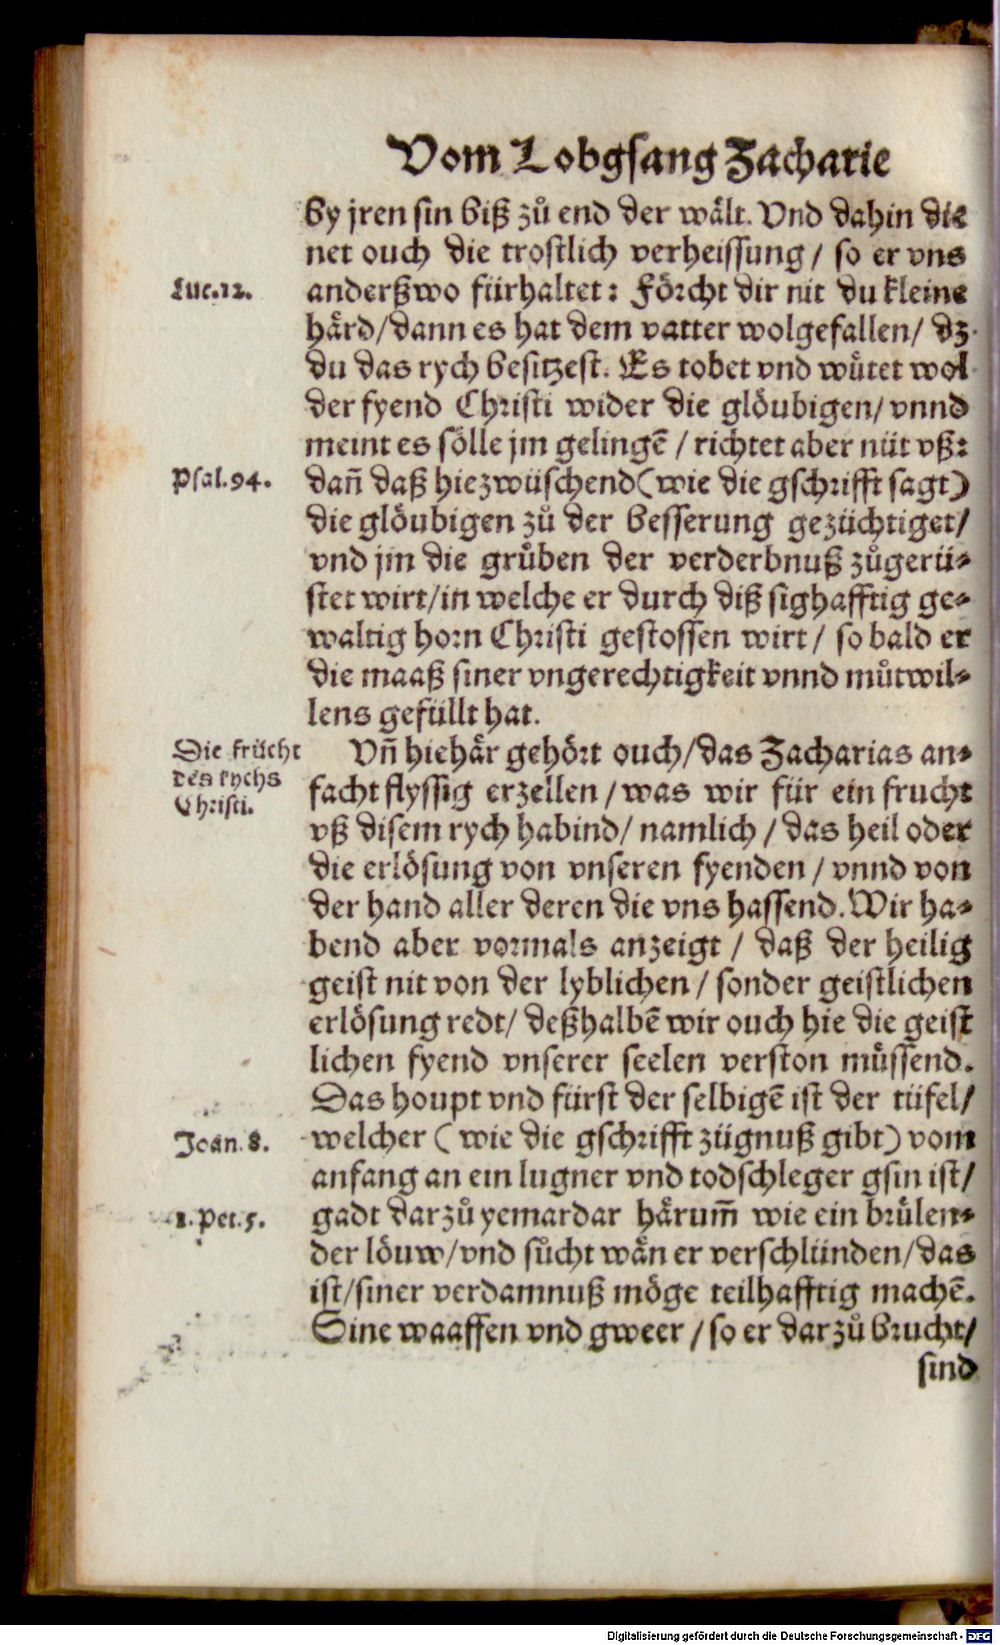 Vom Lobgsang Zacharie
by jren sin biß zů end der wält. Vnd dahin die
net ouch die trostlich verheissung / so er vns
Luc.12.
anderßwo fürhaltet: Förcht dir nit du kleine
härd/dann es hat dem vatter wolgefallen/ dz
du das rych besitzest. Es tobet vnd wütet wol
der fyend Christi wider die glöubigen/ vnnd
meint es sölle jm gelingē / richtet aber nüt vß:
Psal.94.
dañ daß hiezwüschend(wie die gschrifft sagt)
die glöubigen zů der besserung gezüchtiget/
vnd jm die grůben der verderbnuß zůgerü-
stet wirt/in welche er durch diß sighafftig ge-
waltig horn Christi gestossen wirt / so bald er
die maaß siner vngerechtigkeit vnnd můtwil-
lens gefüllt hat.
Die frücht
des rychs
Christi.
Vñ hiehär gehört ouch/das Zacharias an-
facht flyssig erzellen / was wir für ein frucht
vß disem rych habind/ namlich / das heil oder
die erlösung von vnseren fyenden / vnnd von
der hand aller deren die vns hassend. Wir ha-
bend aber vormals anzeigt / daß der heilig
geist nit von der lyblichen / sonder geistlichen
erlösung redt/ deßhalbē wir ouch hie die geist
lichen fyend vnserer seelen verston müssend.
Das houpt vnd fürst der selbigē ist der tüfel/
Joan. 8.
welcher ( wie die gschrifft zügnuß gibt) vom
anfang an ein lugner vnd todschleger gsin ist/
1. Pet. 5.
gadt darzů yemardar härum̃ wie ein brülen-
der löuw/vnd sůcht wän er verschlünden/das
ist/siner verdamnuß möge teilhafftig machē.
Sine waaffen vnd gweer / so er darzů brucht/
sind
Digitalisierung gefördert durch die Deutsche Forschungsgemeinschaft - DFG